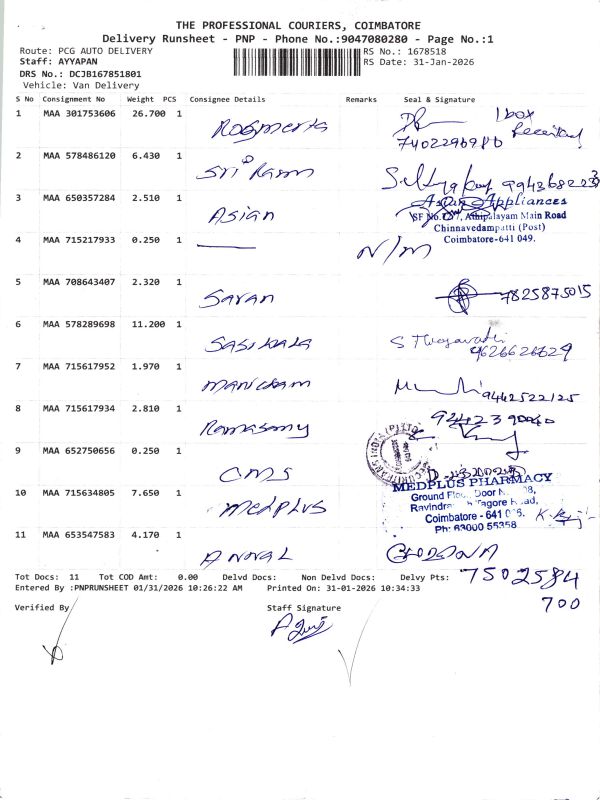 THE PROFESSIONAL COURIERS, COIMBATORE
Delivery Runsheet - PNP - Phone No.:9047080280 - Page No.:1
Route: PCG AUTO DELIVERY RS No.: 1678518
Staff: AYYAPAN RS Date: 31-Jan-2026
DRS No.: DCJB167851801
Vehicle: Van Delivery
S No Consignment No Weight PCS Consignee Details Remarks Seal & Signature
1 MAA 301753606 26.700 1 Rosmerta 1 box Received
7402296980
2 MAA 578486120 6.430 1 Sri Ram
3 MAA 650357284 2.510 1 Asian Asian Appliances
SF No. Athipalayam Main Road
Chinnavedampatti (Post)
Coimbatore-641 049.
4 MAA 715217933 0.250 1 N/M
5 MAA 708643407 2.320 1 Saran 7825875015
6 MAA 578289698 11.200 1 Sasikala
9626626629
7 MAA 715617952 1.970 1 Manickam 9442522125
8 MAA 715617934 2.810 1 Ramasamy
9 MAA 652750656 0.250 1 CMS
10 MAA 715634805 7.650 1 Medplus MEDPLUS PHARMACY
Ground Floor, Door
Tagore Road,
Coimbatore - 641
Ph: 63000 55358
11 MAA 653547583 4.170 1
Tot Docs: 11 Tot COD Amt: 0.00 Delvd Docs: Non Delvd Docs: Delvy Pts: 7502584
700
Entered By :PNPRUNSHEET 01/31/2026 10:26:22 AM Printed On: 31-01-2026 10:34:33
Verified By Staff Signature